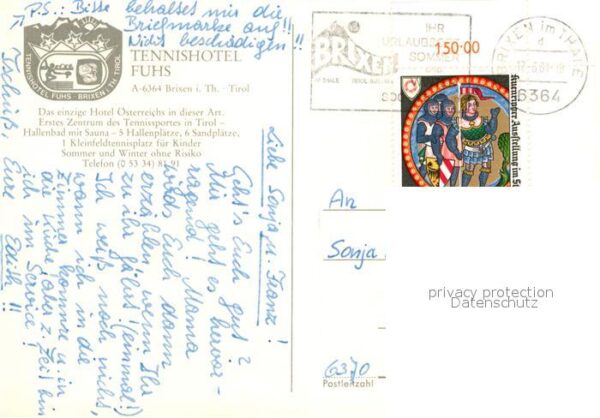 P.S.: Bitte behaltet mir die
Briefmarke auf!!
Nicht beschädigen!!
TENNISHOTEL
FUHS
A-6364 Brixen i. Th. - Tirol
TENNISHOTEL FUHS - BRIXEN i. TH. TIROL
Das einzige Hotel Österreichs in dieser Art.
Erstes Zentrum des Tennissportes in Tirol –
Hallenbad mit Sauna – 5 Hallenplätze, 6 Sandplätze,
1 Kleinfeldtennisplatz für Kinder
Sommer und Winter ohne Risiko
Telefon (0 53 34) 81
Liebe Sonja u. Franz!
Geht's Euch gut?
Mir geht es hervor-
ragend! Mama
wird's Euch dann
erzählen wenn Ihr
zu ihr geht! (einmal!)
Ich weiß noch nicht,
wann ich in die
Zimmer komme u. in
die Küche aber z. Zeit bin
ich im Service!
Tschüß, Eure Edith!!
BRIXEN
IM THALE
IHR
URLAUBS
SOMMER
150·00
BRIXEN im THALE
6364
Kuenringer Ausstellung im St
An
Sonja
6370
Postleitzahl
privacy protection
Datenschutz